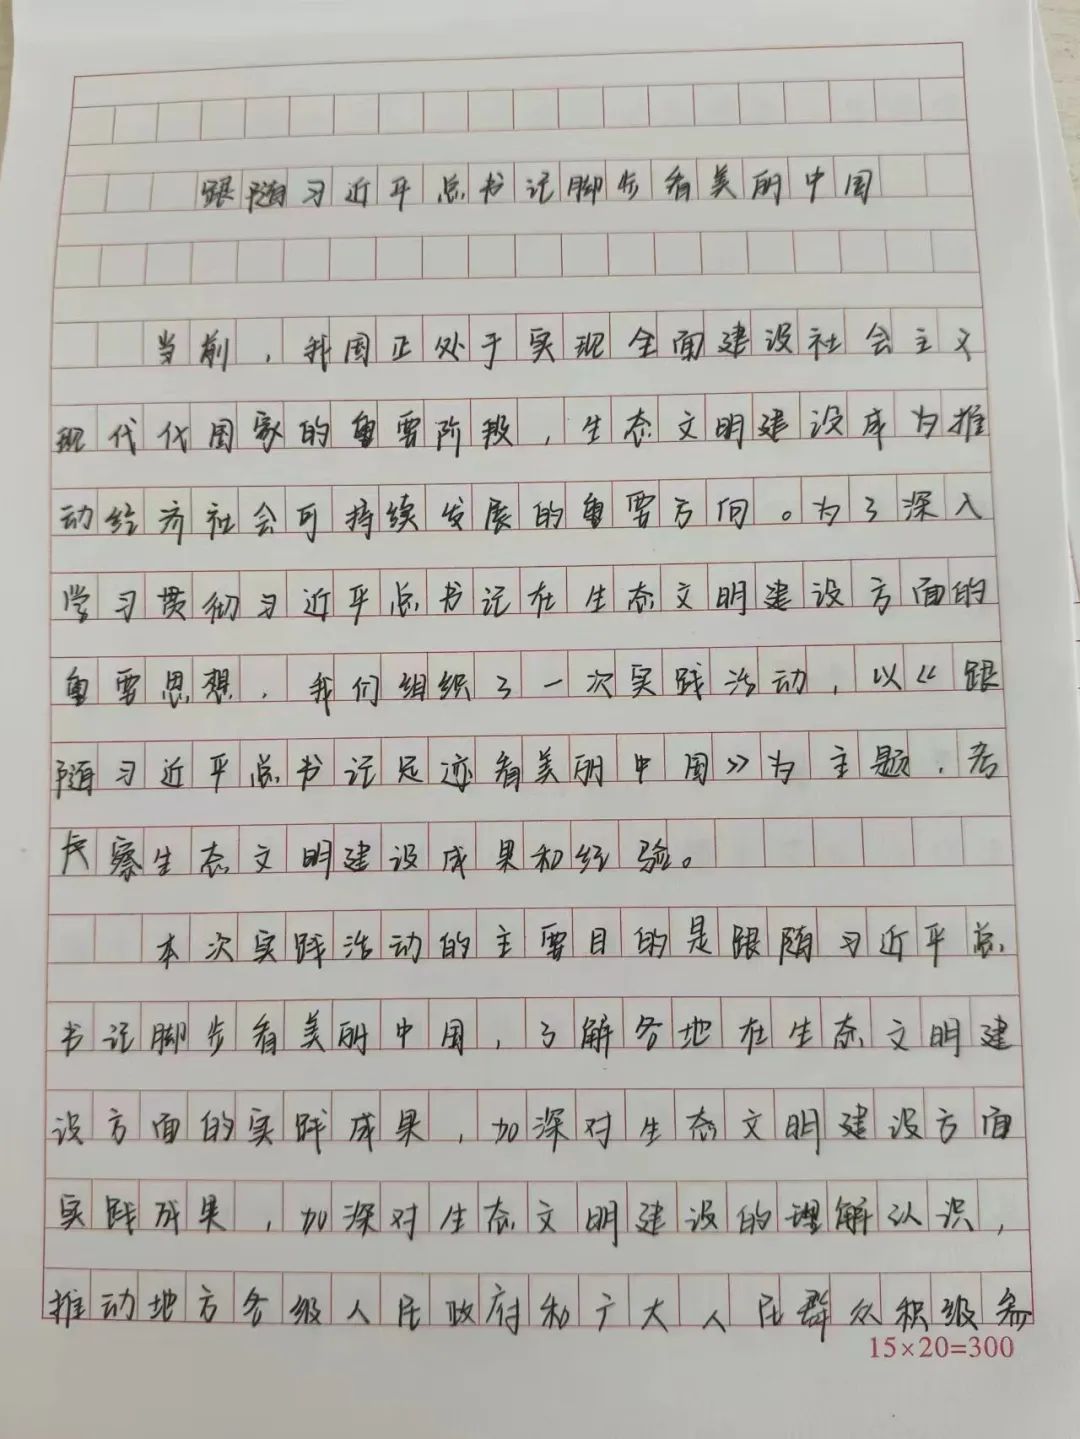 跟随习近平总书记脚步看美丽中国
当前，我国正处于实现全面建设社会主义
现代化国家的重要阶段，生态文明建设成为推
动经济社会可持续发展的重要方向。为了深入
学习贯彻习近平总书记在生态文明建设方面的
重要思想，我们组织了一次实践活动，以《跟
随习近平总书记足迹看美丽中国》为主题，考
察生态文明建设成果和经验。
本次实践活动的主要目的是跟随习近平总
书记脚步看美丽中国，了解各地在生态文明建
设方面的实践成果，加深对生态文明建设方面
实践成果，加深对生态文明建设的理解认识，
推动地方各级人民政府和广大人民群众积级参
15×20=300